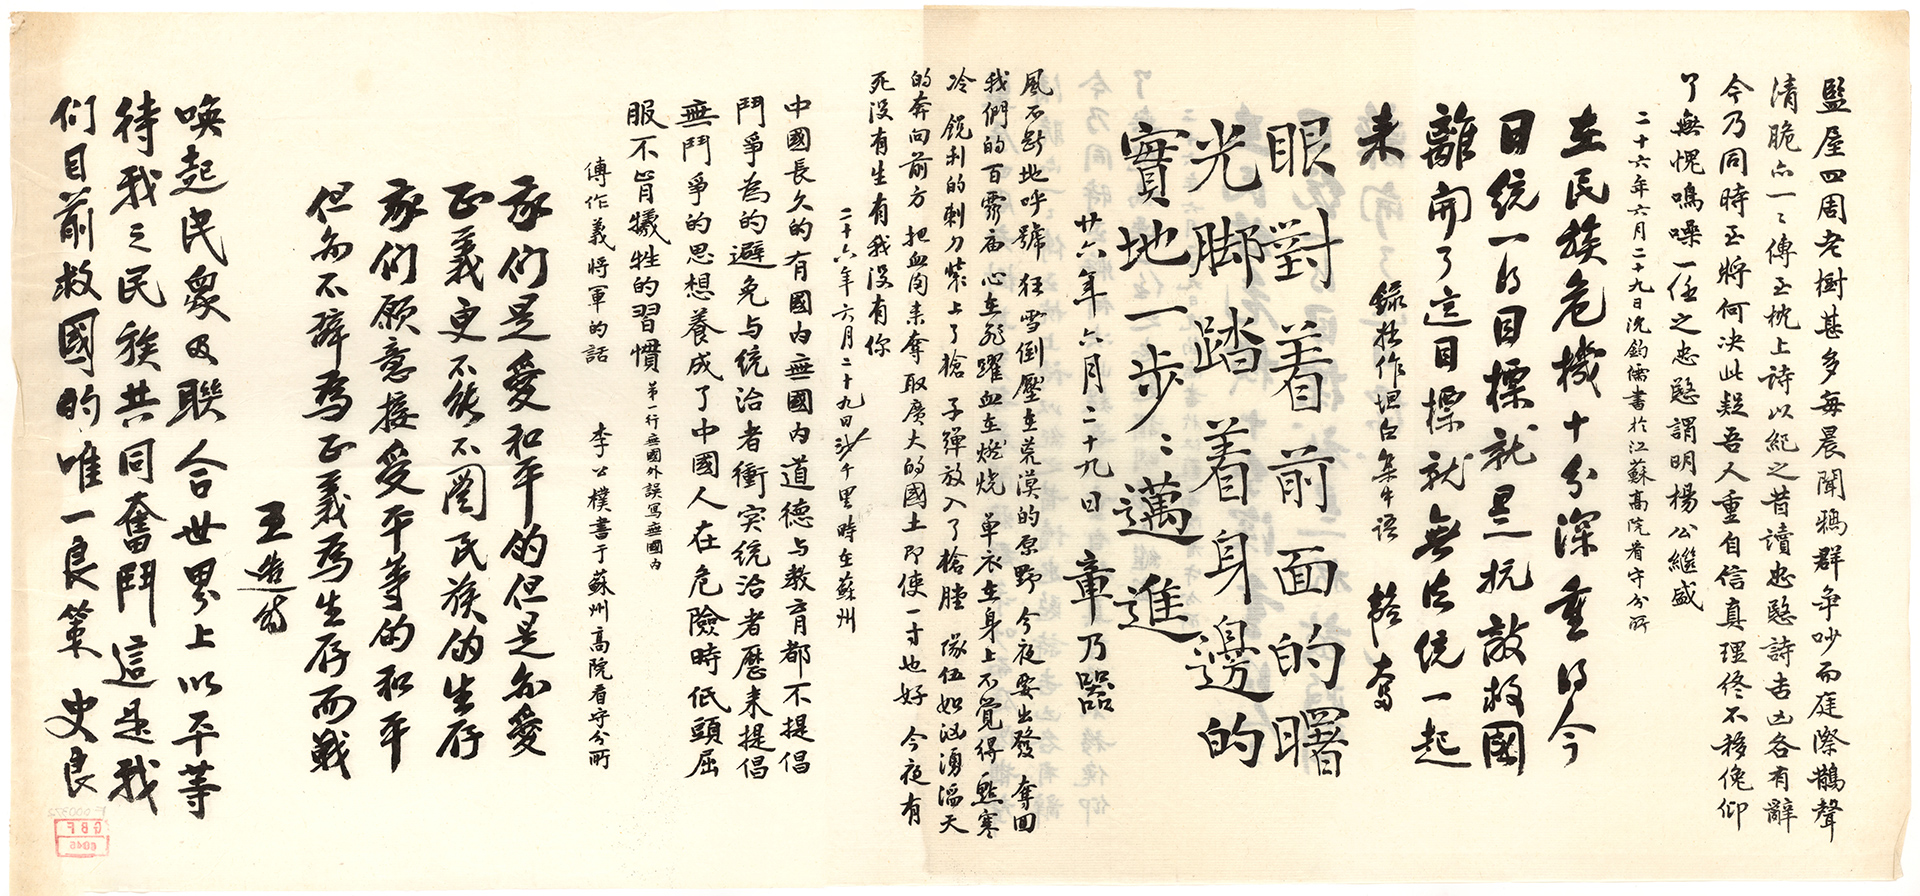 監屋四周老樹甚多每晨聞鴉群爭吵而庭際鵲聲
清脆亦一二傳至枕上詩以紀之昔讀忠愍詩吉凶各有辭
今乃同時至將何决此疑吾人重自信真理終不移俛仰
了無愧鳴噪一任之忠愍謂明楊公繼盛
二十六年六月二十九日沈鈞儒書於江蘇高院看守分所
在民族危機十分深重的今
日統一的目標就是抗敵救國
離開了這目標就無法統一起
来
錄拙作坦白集中語 韜奮
眼對着前面的曙
光脚踏着身邊的
實地一步二邁進
廿六年六月二十九日 章乃器
風不斷地呼號 狂雪倒壓在荒漠的原野 今夜要出發 奪回
我們的百靈庙 心在飛躍 血在燃烧 單衣在身上不覺得點寒
冷 鋭利的刺刀裝上了槍 子彈放入了槍膛 隊伍如汹湧滔天
的奔向前方 把血肉来奪取廣大的國土 即使一寸也好 今夜有
死没有生 有我没有你
二十六年六月二十九日 沙千里時在蘇州
中國長久的有國内無國内道德与教育都不提倡
鬥爭為的避免与統治者衝突統治者歷来提倡
無鬥爭的思想養成了中國人在危險時低頭屈
服不肯犧牲的習慣 第一行無國外誤寫無國内
傅作義將軍的話 李公樸書于蘇州高院看守分所
我们是愛和平的但是尔愛
正義更不能不圖民族的生存
我们願意接受平等的和平
但尔不辞為正義為生存而戰
王造时
唤起民衆及聯合世界上以平等
待我之民族共同奮鬥 這是我
们目前救國的唯一良策 史良
F 000372
GBF
6046